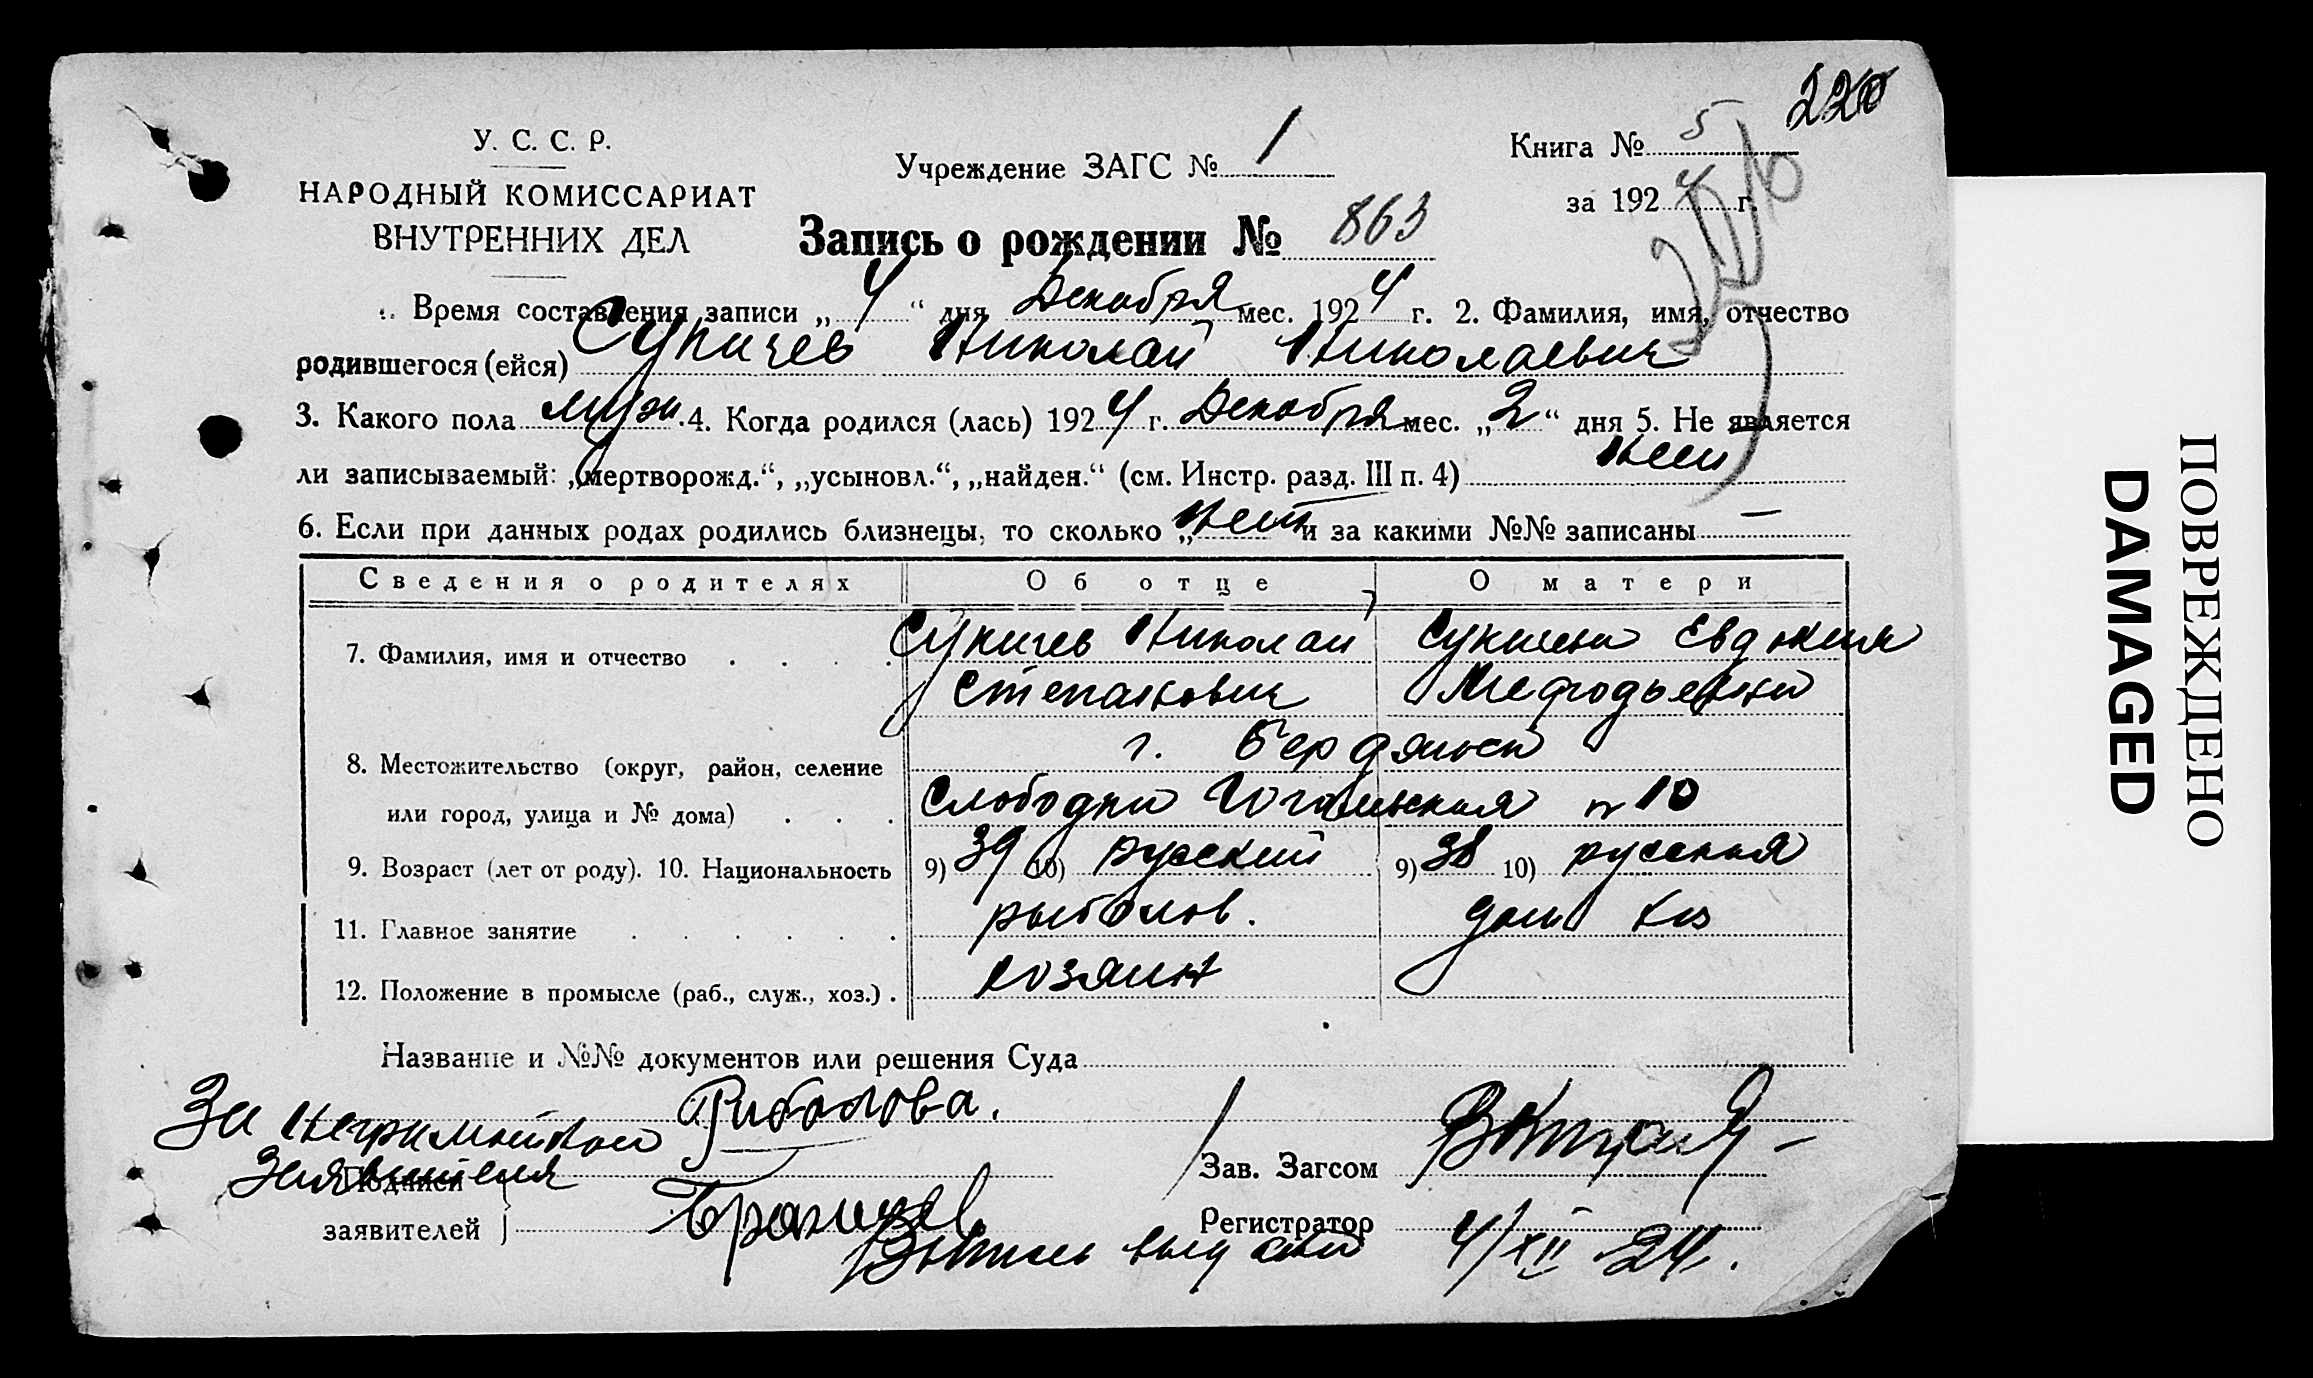 220
У. С. С. Р.
НАРОДНЫЙ КОМИССАРИАТ
ВНУТРЕННИХ ДЕЛ
Учреждение ЗАГС № 1
Книга № 5
за 1924 г.
Запись о рождении № 863
Время составления записи „4“ дня Декабря мес. 1924 г. 2. Фамилия, имя, отчество
родившегося (ейся) Сукичев Николай Николаевич
3. Какого пола муж. 4. Когда родился (лась) 1924 г. Декабря мес. „2“ дня 5. Не является
ли записываемый: „мертворожд.“, „усыновл.“, „найден.“ (см. Инстр. разд. III п. 4) Нет
6. Если при данных родах родились близнецы, то сколько „нет и за какими №№ записаны —
Сведения о родителях Об отце О матери
7. Фамилия, имя и отчество Сукичев Николай Евдокия
Степанович Мефодьевна
г. Бердянск
8. Местожительство (округ, район, селение
или город, улица и № дома) Слободка Гогольская № 10
9. Возраст (лет от роду). 10. Национальность 9) 39 10) русский 9) 38 10) русская
11. Главное занятие рыболов. дом хоз
12. Положение в промысле (раб., служ., хоз.) хозяин
Название и №№ документов или решения Суда
За неграмотной Риболова.
Заявителя
Подписи
заявителей
Зав. Загсом
Регистратор
Выпись выдана 4/XII 24.
ПОВРЕЖДЕНО
DAMAGED